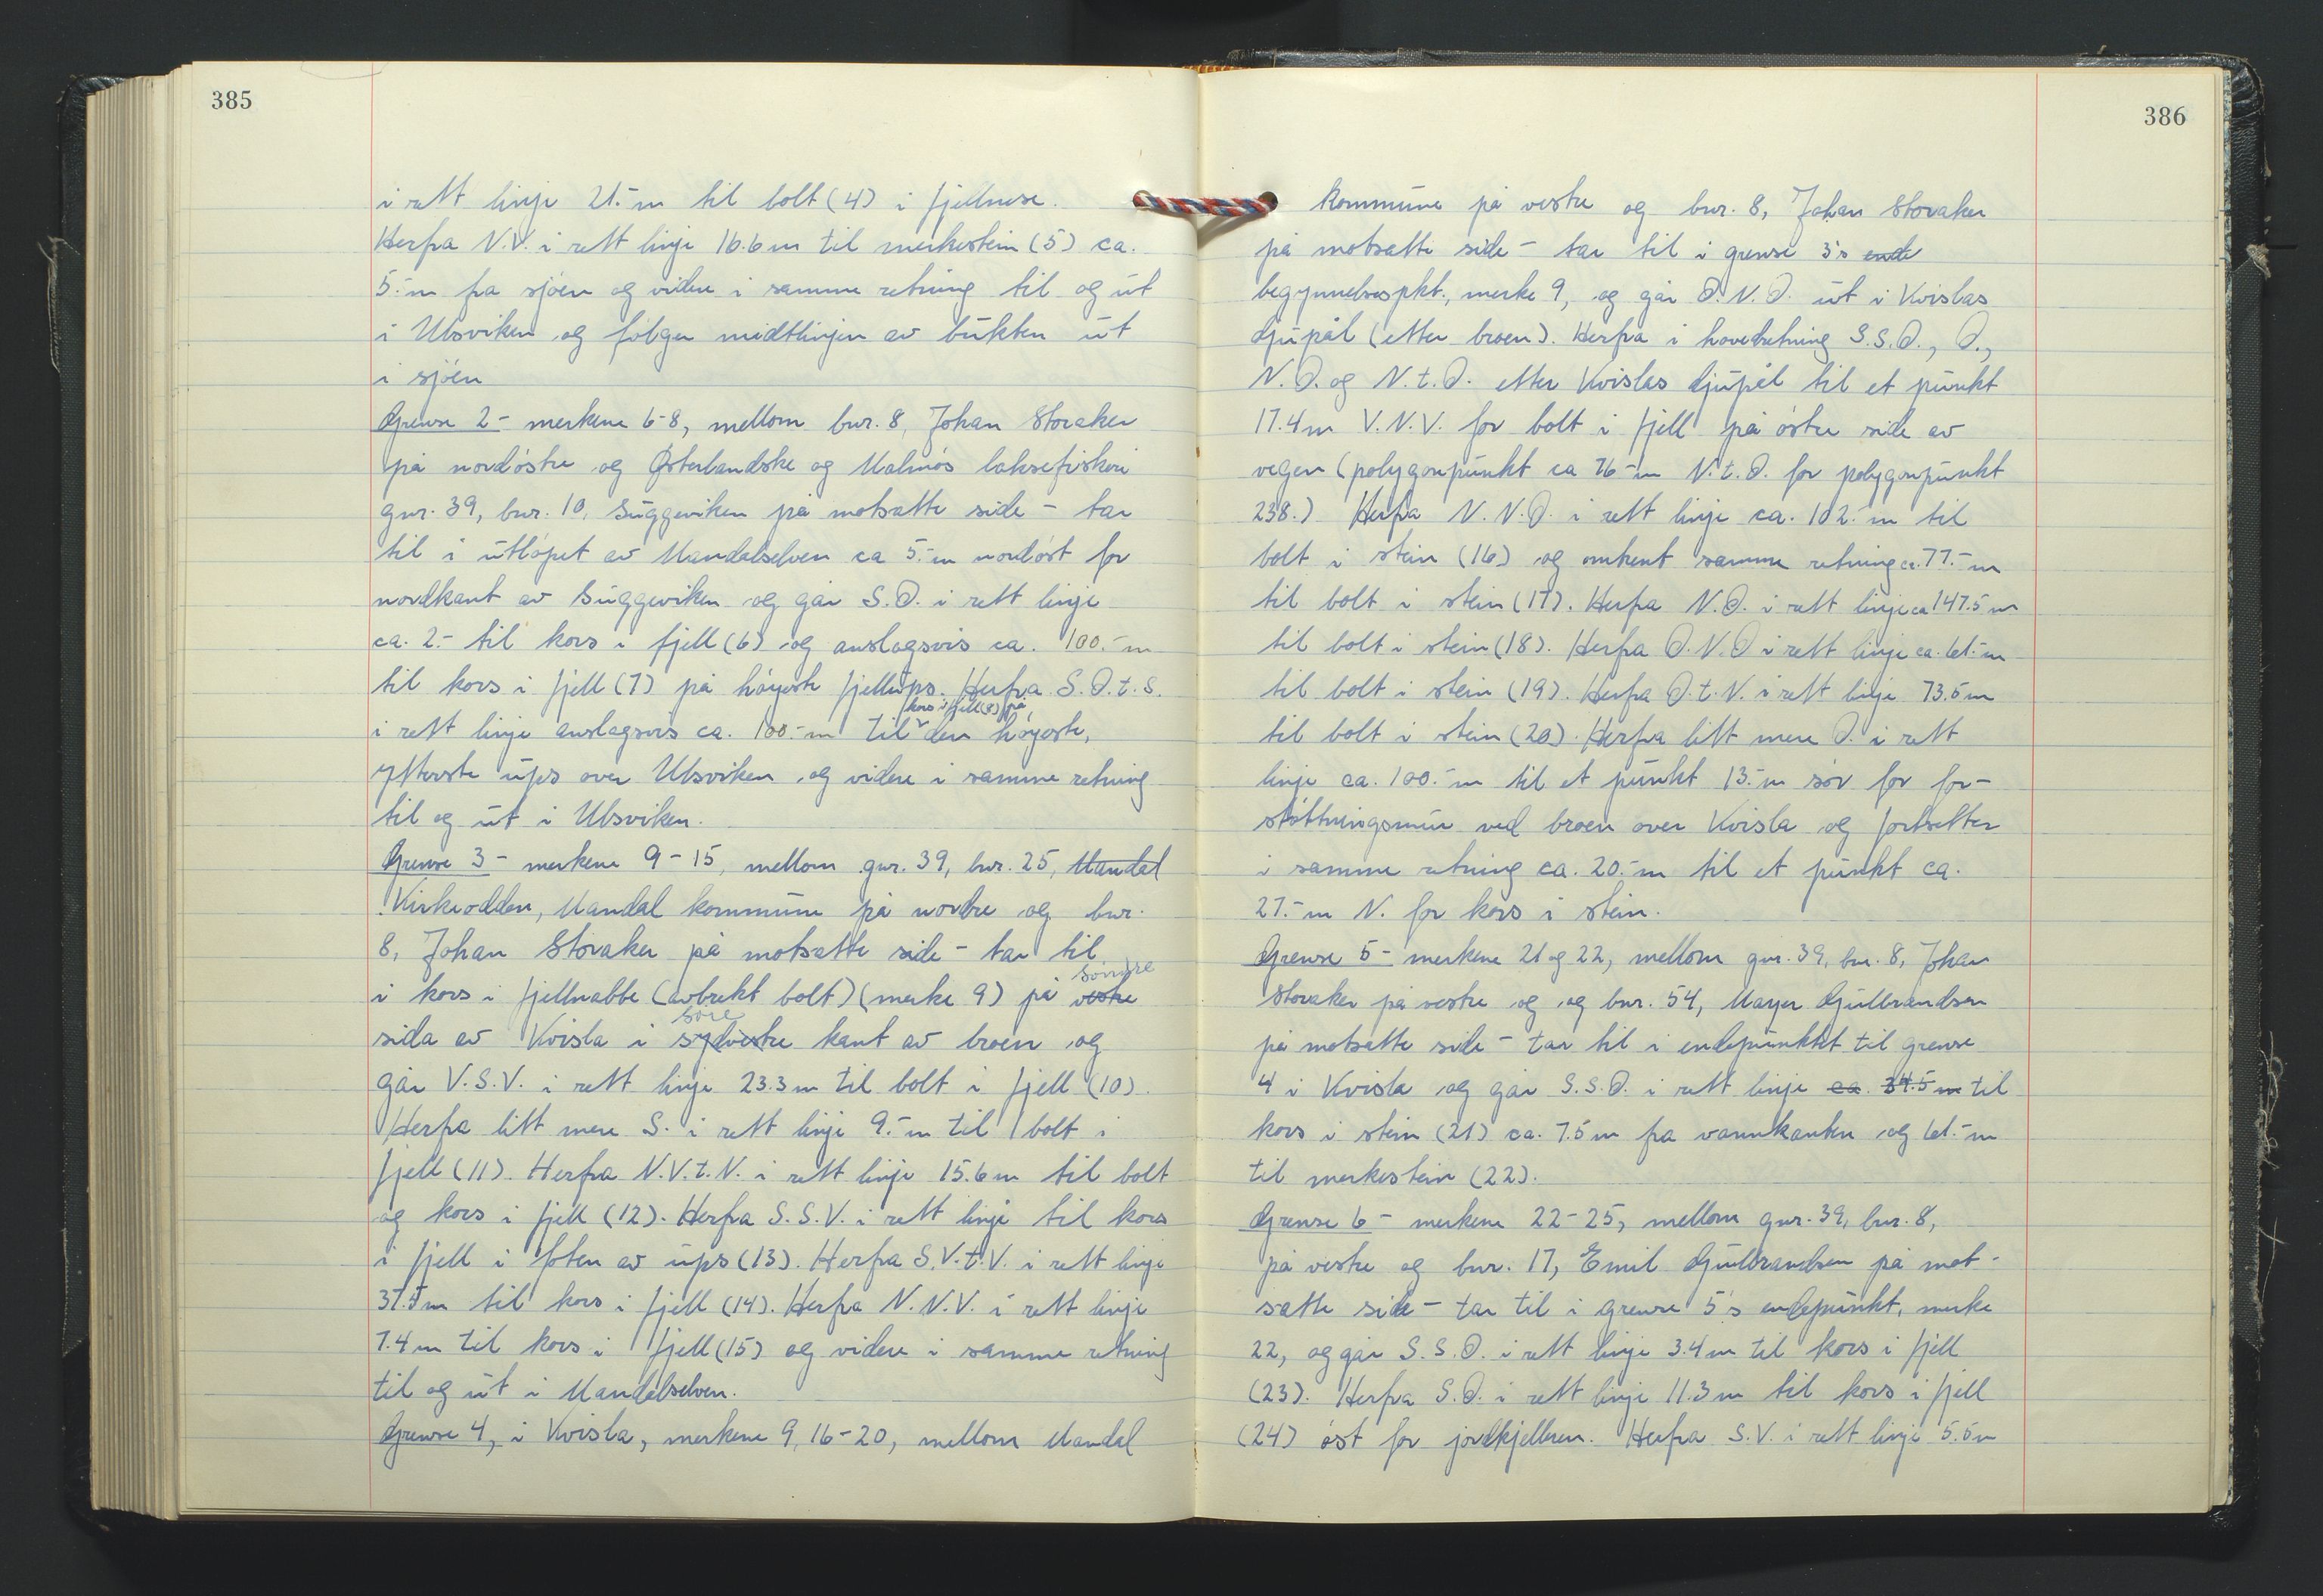 385
i rett linje 21.- m til bolt (4) i fjellnese.
Herfra N.V. i rett linje 16.6 m til merkestein (5) ca.
5.- m fra sjøen og videre i samme retning til og ut
i Ubsviken og følger midtlinjen av bukten ut
i sjøen
Grense 2 - merkene 6-8, mellom bnr. 8, Johan Storaker
på nordøstre og Østerlandske og Malmøs laksefiskeri
gnr. 39, bnr. 10, Suggeviken på motsatte side - tar
til i utløpet av Mandalselven ca 5.- m nordøst for
nordkant av Suggeviken og går S.Ø. i rett linje
ca. 2.- til kors i fjell (6) og anslagsvis ca. 100.- m
til kors i fjell (7) på høyeste fjellups. Herfra S.Ø.t.S.
kors i fjell (8) på
i rett linje anslagsvis ca. 100.- m til den høyeste,
ytterste ups over Ubsviken og videre i samme retning
til og ut i Ubsviken.
Grense 3 - merkene 9-15, mellom gnr. 39, bnr. 25, Mandal
Kirkeodden, Mandal kommune på nordre og bnr.
8, Johan Storaker på motsatte side - tar til
søndre
i kors i fjellnabbe (avbrekt bolt) (merke 9) på vestre
søre
sida av Kvisla i sydvestre kant av broen og
går V.S.V. i rett linje 23.3 m til bolt i fjell (10).
Herfra litt mere S. i rett linje 9.- m til bolt i
fjell (11). Herfra N.V.t.N. i rett linje 15.6 m til bolt
og kors i fjell (12). Herfra S.S.V. i rett linje til kors
i fjell i foten av ups (13). Herfra S.V.t.V. i rett linje
37.5 m til kors i fjell (14). Herfra N.N.V. i rett linje
7.4 m til kors i fjell (15) og videre i samme retning
til og ut i Mandalselven.
Grense 4, i Kvisla, merkene 9, 16-20, mellom Mandal
386
kommune på vestre og bnr. 8, Johan Storaker
på motsatte side - tar til i grense 3's ende
begynnelsespkt., merke 9, og går Ø.N.Ø. ut i Kvislas
djupål (etter broen). Herfra i hovedretning S.S.Ø., Ø.,
N.Ø. og N.t.Ø. etter Kvislas djupål til et punkt
17.4 m V.N.V. for bolt i fjell på østre side av
vegen (polygonpunkt ca 76.- m N.t.Ø. for polygonpunkt
238.) Herfra N.N.Ø. i rett linje ca. 102.- m til
bolt i stein (16) og omtrent samme retning ca. 77.- m
til bolt i stein (17). Herfra N.Ø. i rett linje ca 147.5 m
til bolt i stein (18). Herfra Ø.N.Ø i rett linje ca. 61.- m
til bolt i stein (19). Herfra Ø.t.N. i rett linje 73.5 m
til bolt i stein (20). Herfra litt mere Ø. i rett
linje ca. 100.- m til et punkt 13.- m sør for for-
støttningsmur ved broen over Kvisla og fortsetter
i samme retning ca. 20.- m til et punkt ca.
27.- m N. for kors i stein.
Grense 5 - merkene 21 og 22, mellom gnr. 39, bnr. 8, Johan
Storaker på vestre og og bnr. 54, Mayer Gulbrandsen
på motsatte side - tar til i endepunktet til grense
4 i Kvisla og går S.S.Ø. i rett linje ca. 34.5 m til
kors i stein (21) ca. 7.5 m fra vannkanten og 61.- m
til merkestein (22).
Grense 6 - merkene 22-25, mellom gnr. 39, bnr. 8,
på vestre og bnr. 17, Emil Gulbrandsen på mot-
satte side - tar til i grense 5's endepunkt, merke
22, og går S.S.Ø. i rett linje 3.4 m til kors i fjell
(23). Herfra S.Ø. i rett linje 11.3 m til kors i fjell
(24) øst for jordkjelleren. Herfra S.V. i rett linje 5.5 m